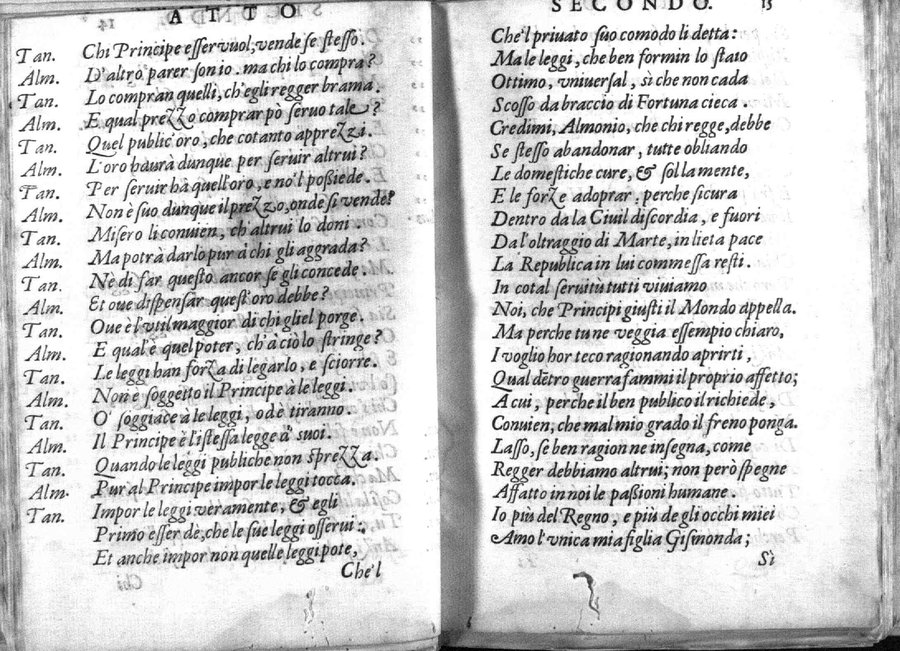 ATTO
Tan. Chi Principe esser vuol, vende se stesso.
Alm. D'altro parer son io. ma chi lo compra?
Tan. Lo compran quelli, ch'egli regger brama.
Alm. E qual prezzo comprar pò seruo tale?
Tan. Quel public' oro, che cotanto apprezzi.
Alm. L'oro haurà dunque per seruir altrui?
Tan. Per seruir hà quell'oro, e no'l poßiede.
Alm. Non è suo dunque il prezzo, onde si vende?
Tan. Misero li conuien, ch'altrui lo doni.
Alm. Ma potrà darlo pur à chi gli aggrada?
Tan. Nè di far questo ancor se gli concede.
Alm. Et oue dispensar quest'oro debbe?
Tan. Oue è l'vtil maggior di chi gliel porge.
Alm. E qual'è quel poter, ch'à ciò lo stringe?
Tan. Le leggi han forza di legarlo, e sciorre.
Alm. Non è soggetto il Principe à le leggi.
Tan. O' soggiace à le leggi, od è tiranno.
Alm. Il Principe è l'istessa legge a' suoi.
Tan. Quando le leggi publiche non sprezza.
Alm. Pur al Principe impor le leggi tocca.
Tan. Impor le leggi veramente, & egli
Primo esser dè, che le sue leggi osserui:
Et anche impor non quelle leggi pote,
Che'l
SECONDO. 15
Che'l priuato suo comodo li detta:
Ma le leggi, che ben formin lo stato
Ottimo, vniuersal, sì che non cada
Scosso da braccio di Fortuna cieca.
Credimi, Almonio, che chi regge, debbe
Se stesso abandonar, tutte obliando
Le domestiche cure, & sol la mente,
E le forze adoprar, perche sicura
Dentro da la Ciuil discordia, e fuori
Da l'oltraggio di Marte, in lieta pace
La Republica in lui commessa resti.
In cotal seruitù tutti viuiamo
Noi, che Principi giusti il Mondo appella.
Ma perche tu ne veggia essempio chiaro,
I voglio hor teco ragionando aprirti,
Qual dētro guerra fammi il proprio affetto;
A cui, perche il ben publico il richiede,
Conuien, che mal mio grado il freno ponga.
Lasso, se ben ragion ne insegna, come
Regger debbiamo altrui; non però spegne
Affatto in noi le paßioni humane.
Io più del Regno, e più de gli occhi miei
Amo l'vnica mia figlia Gismonda;
Sì